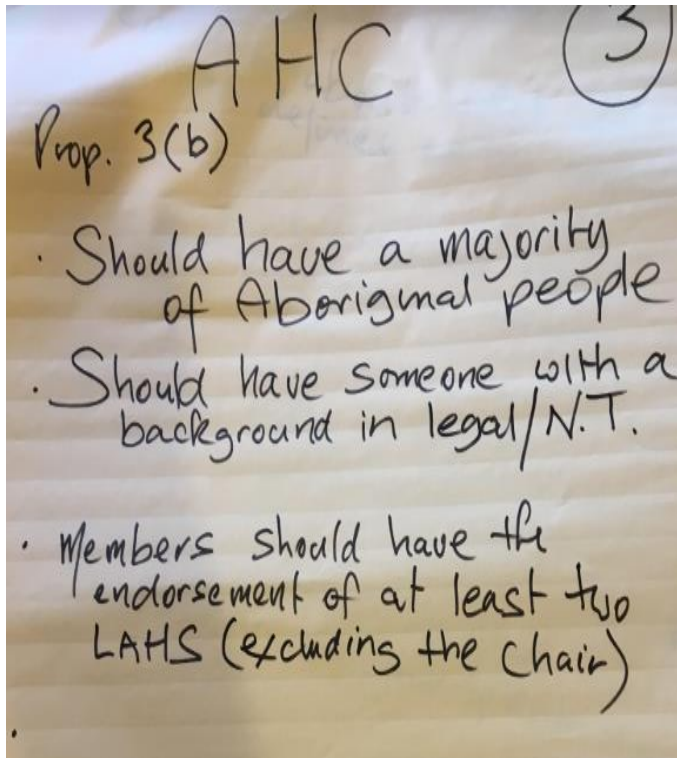 AHC
3
Prop. 3(b)
· Should have a majority
of Aboriginal people
· Should have someone with a
background in legal/N.T.
· Members should have the
endorsement of at least two
LAHS (excluding the Chair)
·